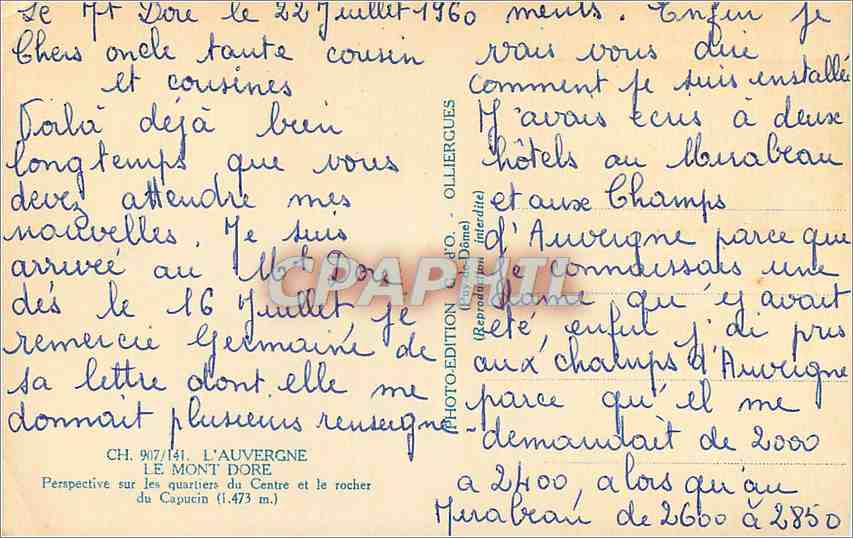 Le Mt Dore le 22 Juillet 1960
Chers oncle tante cousin
et cousines
Voilà déjà bien
longtemps que vous
devez attendre mes
nouvelles. Je suis
arrivée au Mt Dore
dés le 16 Juillet, je
remercie Germaine de
sa lettre dont elle me
donnait plusieurs renseigne
CH. 907/141. L'AUVERGNE
LE MONT DORE
Perspective sur les quartiers du Centre et le rocher
du Capucin (1.473 m.)
(PHOTO-EDITION OLLIERGUES
(Puy-de-Dôme)
(Reproduction interdite)
ments. Enfin je
vais vous dire
comment je suis installée
J'avais ecris à deux
hôtels au Mirabeau
et aux Champs
d'Auvergne parce que
je connaissais une
dame qu'y avait
été, enfin j'ai pris
aux champs d'Auvergne
parce qu'el me
-demandait de 2000
a 2400, alors qu'au
Mirabeau de 2600 à 2850
CPAPHIL